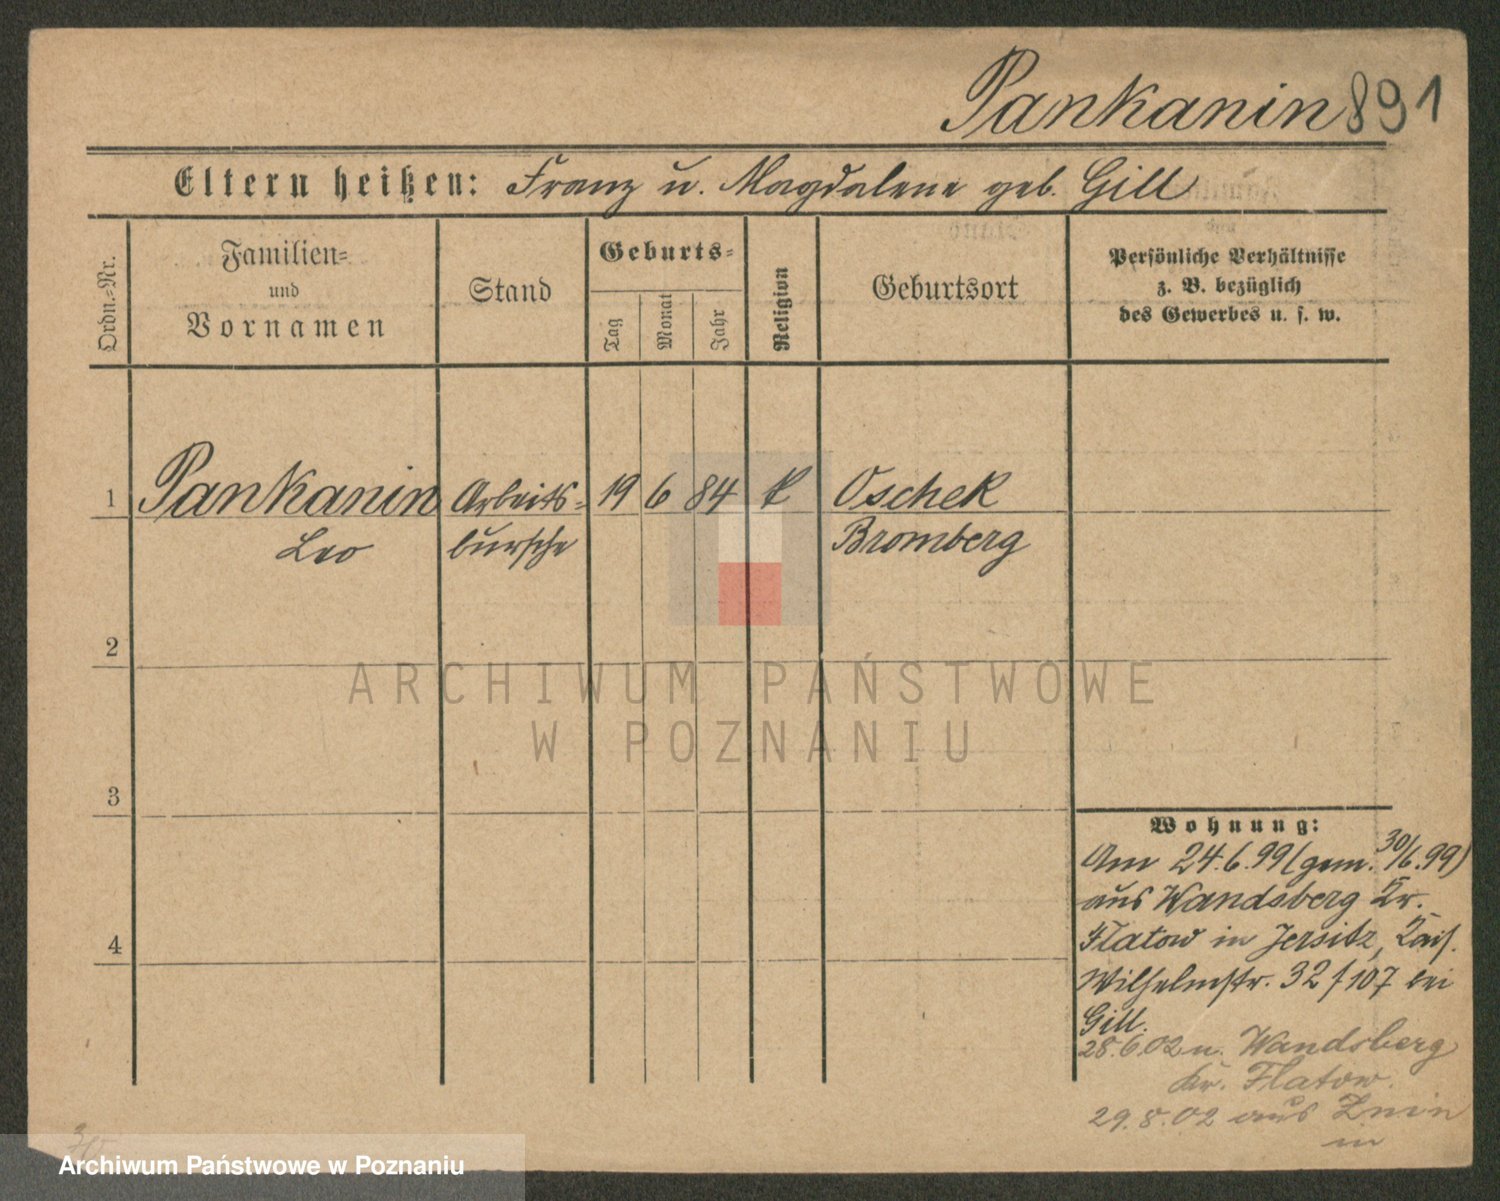 Pankanin 891
Eltern heißen: Franz u. Magdalene geb. Gill
Ordn.-Nr.
Familien-
und
Vornamen
Stand
Geburts-
Tag
Monat
Jahr
Religion
Geburtsort
Persönliche Verhältnisse
z. B. bezüglich
des Gewerbes u. s. w.
1 Pankanin Arbeits- 19 6 84 k Oschek
Leo bursche Bromberg
2
3
4
Wohnung:
Am 24.6.99 (gem. 30/6.99)
aus Wandsberg Kr.
Flatow in Jersitz, Kais.
Wilhelmstr. 32 / 107 bei
Gill.
28.6.02 n. Wandsberg
Kr. Flatow.
29.8.02 aus Znin
in
ARCHIWUM PAŃSTWOWE
W POZNANIU
Archiwum Państwowe w Poznaniu